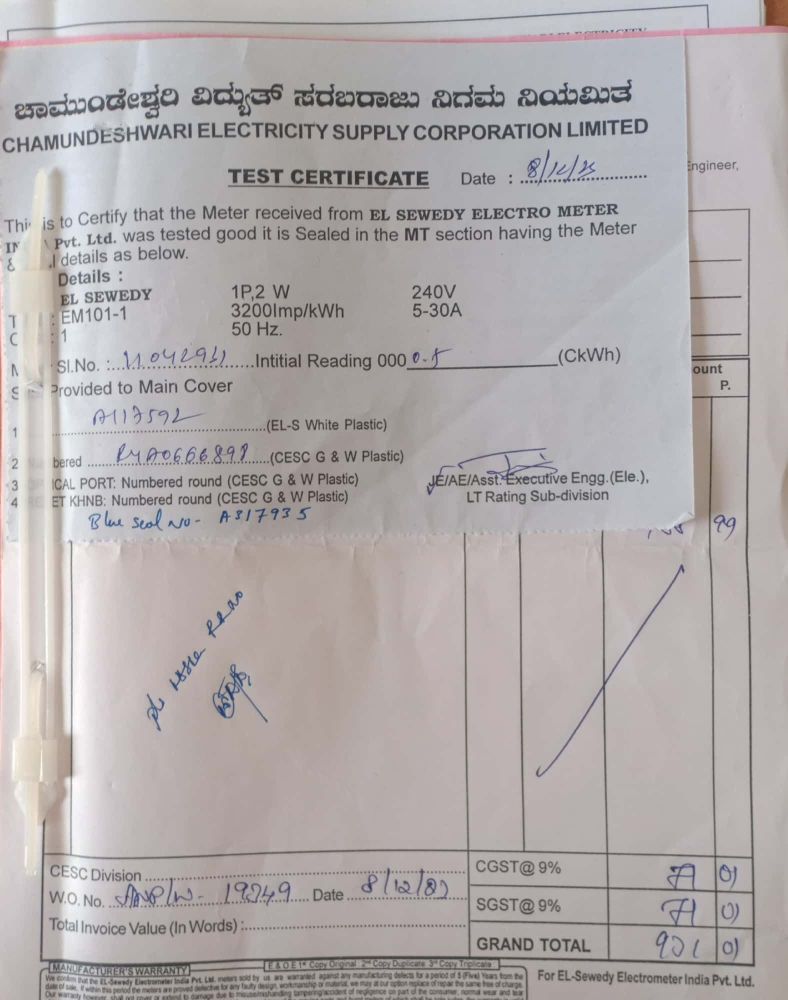 ಚಾಮುಂಡೇಶ್ವರಿ ವಿದ್ಯುತ್ ಸರಬರಾಜು ನಿಗಮ ನಿಯಮಿತ
CHAMUNDESHWARI ELECTRICITY SUPPLY CORPORATION LIMITED
TEST CERTIFICATE Date : 8/12/25
Engineer,
is to Certify that the Meter received from EL SEWEDY ELECTRO METER
Pvt. Ltd. was tested good it is Sealed in the MT section having the Meter
details as below.
Details :
EL SEWEDY 1P,2 W 240V
: EM101-1 3200Imp/kWh 5-30A
: 1 50 Hz.
Sl.No. : Intitial Reading 000 0.5 (CkWh)
Provided to Main Cover
ount
P.
1 A117592 (EL-S White Plastic)
2 bered (CESC G & W Plastic)
3 ICAL PORT: Numbered round (CESC G & W Plastic)
4 ET KHNB: Numbered round (CESC G & W Plastic)
JE/AE/Asst. Executive Engg.(Ele.),
LT Rating Sub-division
Blue seal No- A317935
99
CESC Division
CGST@ 9% 71 01
W.O. No. 19249 Date 8/12/
SGST@ 9% 71 01
Total Invoice Value (In Words) :
GRAND TOTAL 931 01
E & O E 1st Copy Original : 2nd Copy Duplicate 3rd Copy Triplicate
MANUFACTURER'S WARRANTY
For EL-Sewedy Electrometer India Pvt. Ltd.
We confirm that the EL-Sewedy Electrometer India Pvt. Ltd. meters sold by us are warranted against any manufacturing defects for a period of 5 (Five) Years from the
date of sale. If within this period the meters are proved defective for any faulty design, workmanship or material, we may at our option replace of repair the same free of charge.